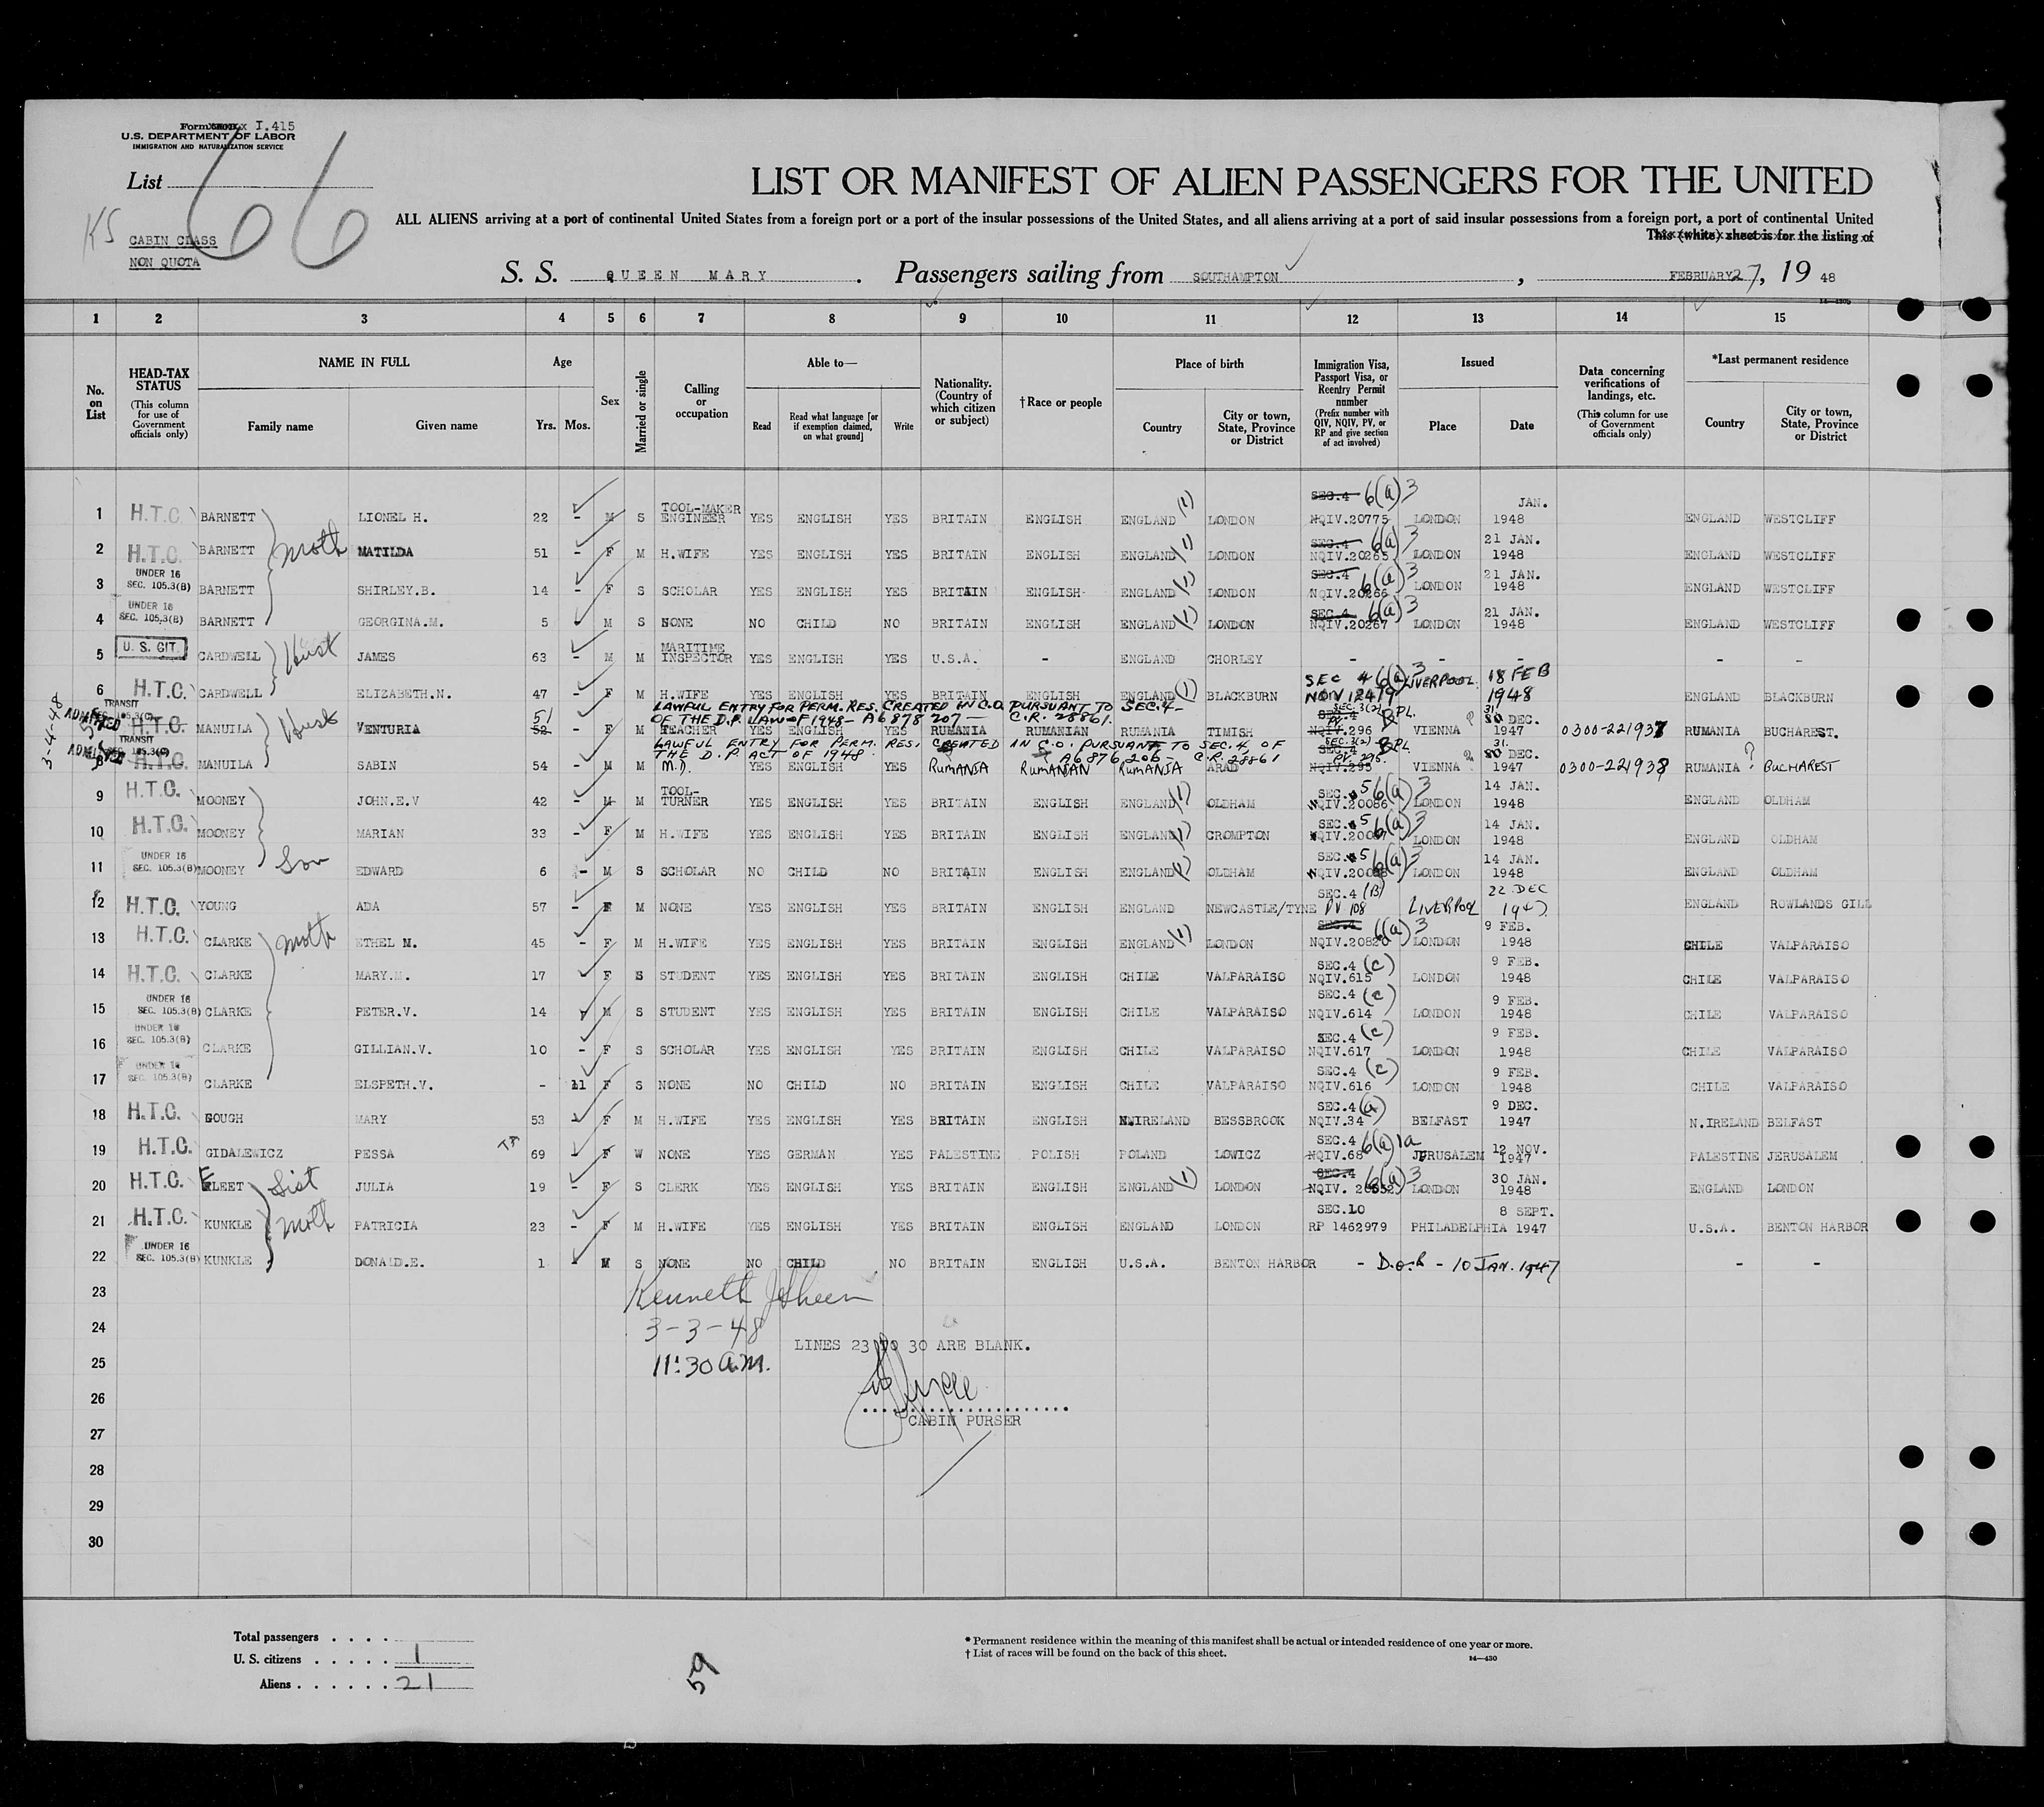 Form I.415
U.S. DEPARTMENT OF LABOR
IMMIGRATION AND NATURALIZATION SERVICE
List
66
KS
CABIN CLASS
NON QUOTA
LIST OR MANIFEST OF ALIEN PASSENGERS FOR THE UNITED
ALL ALIENS arriving at a port of continental United States from a foreign port or a port of the insular possessions of the United States, and all aliens arriving at a port of said insular possessions from a foreign port, a port of continental United
This (white) sheet is for the listing of
S. S. QUEEN MARY. Passengers sailing from SOUTHAMPTON, FEBRUARY 27, 19 48
1 2 3 4 5 6 7 8 9 10 11 12 13 14 15
No. on List
HEAD-TAX STATUS (This column for use of Government officials only)
NAME IN FULL
Family name
Given name
Age
Yrs. Mos.
Sex
Married or single
Calling or occupation
Able to—
Read
Read what language [or if exemption claimed, on what ground]
Write
Nationality. (Country of which citizen or subject)
†Race or people
Place of birth
Country
City or town, State, Province or District
Immigration Visa, Passport Visa, or Reentry Permit number (Prefix number with QIV, NQIV, PV, or RP and give section of act involved)
Issued
Place
Date
Data concerning verifications of landings, etc. (This column for use of Government officials only)
*Last permanent residence
Country
City or town, State, Province or District
1 H.T.C. BARNETT LIONEL H. 22 - M S TOOL-MAKER ENGINEER YES ENGLISH YES BRITAIN ENGLISH ENGLAND (1) LONDON SEC.4 6(a)3 NQIV.20775 LONDON JAN. 1948 ENGLAND WESTCLIFF
Moth
2 H.T.C. BARNETT MATILDA 51 - F M H.WIFE YES ENGLISH YES BRITAIN ENGLISH ENGLAND (1) LONDON SEC.4 6(a)3 NQIV.20265 LONDON 21 JAN. 1948 ENGLAND WESTCLIFF
3 UNDER 16 SEC. 105.3(B) BARNETT SHIRLEY.B. 14 - F S SCHOLAR YES ENGLISH YES BRITAIN ENGLISH ENGLAND (1) LONDON SEC.4 6(a)3 NQIV.20266 LONDON 21 JAN. 1948 ENGLAND WESTCLIFF
4 UNDER 16 SEC. 105.3(B) BARNETT GEORGINA.M. 5 M S NONE NO CHILD NO BRITAIN ENGLISH ENGLAND (1) LONDON SEC.4 6(a)3 NQIV.20267 LONDON 21 JAN. 1948 ENGLAND WESTCLIFF
5 U. S. CIT. CARDWELL JAMES 63 - M M MARITIME INSPECTOR YES ENGLISH YES U.S.A. - ENGLAND CHORLEY - - - - -
Hust
6 H.T.C. CARDWELL ELIZABETH.N. 47 - F M H.WIFE YES ENGLISH YES BRITAIN ENGLISH ENGLAND (1) BLACKBURN SEC 4 6(a)3 LIVERPOOL 18 FEB 1948 ENGLAND BLACKBURN
LAWFUL ENTRY FOR PERM. RES. CREATED IN C.O. PURSUANT TO SEC.4-
OF THE D.P. LAW OF 1948- A6878207- C.R. 28861.
3-4-48
7 TRANSIT SEC. 105.3(C) ADMITTED H.T.C. MANUILA VENTURIA 51 52 - F M TEACHER YES ENGLISH YES RUMANIA RUMANIAN RUMANIA TIMISH SEC.3(2) SEC.4 PV. NQIV.296 VIENNA 31 30 DEC. 1947 0300-221937 RUMANIA BUCHAREST.
LAWFUL ENTRY FOR PERM. RES. CREATED IN C.O. PURSUANT TO SEC.4, OF
THE D.P. ACT OF 1948 A6876206- C.R. 28861
8 TRANSIT SEC. 105.3(C) ADMITTED H.T.C. MANUILA SABIN 54 - M M M.D. YES ENGLISH YES RUMANIA RUMANIAN RUMANIA ARAD SEC.3(2) SEC.4 PV. 295. NQIV.295 VIENNA 31. 30 DEC. 1947 0300-221938 RUMANIA ? BUCHAREST
9 H.T.C. MOONEY JOHN.E.V 42 - M M TOOL-TURNER YES ENGLISH YES BRITAIN ENGLISH ENGLAND (1) OLDHAM SEC. 5 6(a)3 NQIV.20086 LONDON 14 JAN. 1948 ENGLAND OLDHAM
10 H.T.C. MOONEY MARIAN 33 - F M H.WIFE YES ENGLISH YES BRITAIN ENGLISH ENGLAND (1) CROMPTON SEC. 5 6(a)3 LONDON 14 JAN. 1948 ENGLAND OLDHAM
11 UNDER 16 SEC. 105.3(B) MOONEY Son EDWARD 6 - M S SCHOLAR NO CHILD NO BRITAIN ENGLISH ENGLAND (1) OLDHAM SEC. 5 6(a)3 LONDON 14 JAN. 1948 ENGLAND OLDHAM
12 H.T.C. YOUNG ADA 57 - F M NONE YES ENGLISH YES BRITAIN ENGLISH ENGLAND NEWCASTLE/TYNE SEC.4 (B) PV 108 LIVERPOOL 22 DEC 1947 ENGLAND ROWLANDS GILL
13 H.T.C. CLARKE Moth ETHEL M. 45 - F M H.WIFE YES ENGLISH YES BRITAIN ENGLISH ENGLAND (1) LONDON SEC.4 6(a)3 NQIV.20820 LONDON 9 FEB. 1948 CHILE VALPARAISO
14 H.T.C. CLARKE MARY.M. 17 F S STUDENT YES ENGLISH YES BRITAIN ENGLISH CHILE VALPARAISO SEC.4 (c) NQIV.615 LONDON 9 FEB. 1948 CHILE VALPARAISO
15 UNDER 16 SEC. 105.3(B) CLARKE PETER.V. 14 M S STUDENT YES ENGLISH YES BRITAIN ENGLISH CHILE VALPARAISO SEC.4 (c) NQIV.614 LONDON 9 FEB. 1948 CHILE VALPARAISO
16 UNDER 16 SEC. 105.3(B) CLARKE GILLIAN.V. 10 - F S SCHOLAR YES ENGLISH YES BRITAIN ENGLISH CHILE VALPARAISO SEC.4 (c) NQIV.617 LONDON 9 FEB. 1948 CHILE VALPARAISO
17 UNDER 16 SEC. 105.3(B) CLARKE ELSPETH.V. - 11 F S NONE NO CHILD NO BRITAIN ENGLISH CHILE VALPARAISO SEC.4 (c) NQIV.616 LONDON 9 FEB. 1948 CHILE VALPARAISO
18 H.T.C. GOUGH MARY 53 - F M H.WIFE YES ENGLISH YES BRITAIN ENGLISH N.IRELAND BESSBROOK SEC.4 (a) NQIV.34 BELFAST 9 DEC. 1947 N.IRELAND BELFAST
19 H.T.C. GIDALEWICZ PESSA 69 - F W NONE YES GERMAN YES PALESTINE POLISH POLAND LOWICZ SEC.4 6(a)1a NQIV.68 JERUSALEM 12 NOV. 1947 PALESTINE JERUSALEM
20 H.T.C. FLEET Sist JULIA 19 - F S CLERK YES ENGLISH YES BRITAIN ENGLISH ENGLAND (1) LONDON SEC.4 6(a)3 NQIV. LONDON 30 JAN. 1948 ENGLAND LONDON
21 H.T.C. KUNKLE Moth PATRICIA 23 - F M H.WIFE YES ENGLISH YES BRITAIN ENGLISH ENGLAND LONDON SEC.10 RP 1462979 PHILADELPHIA 8 SEPT. 1947 U.S.A. BENTON HARBOR
22 UNDER 16 SEC. 105.3(B) KUNKLE DONALD.E. 1 - M S NONE NO CHILD NO BRITAIN ENGLISH U.S.A. BENTON HARBOR - D.o.b - 10 JAN. 1947 - -
23
Kenneth
24
3-3-48
LINES 23 TO 30 ARE BLANK.
25
11:30 a.m.
26
CABIN PURSER
27
28
29
30
Total passengers . . . .
U. S. citizens . . . . . 1
Aliens . . . . . . 21
59
* Permanent residence within the meaning of this manifest shall be actual or intended residence of one year or more.
† List of races will be found on the back of this sheet.
14—430